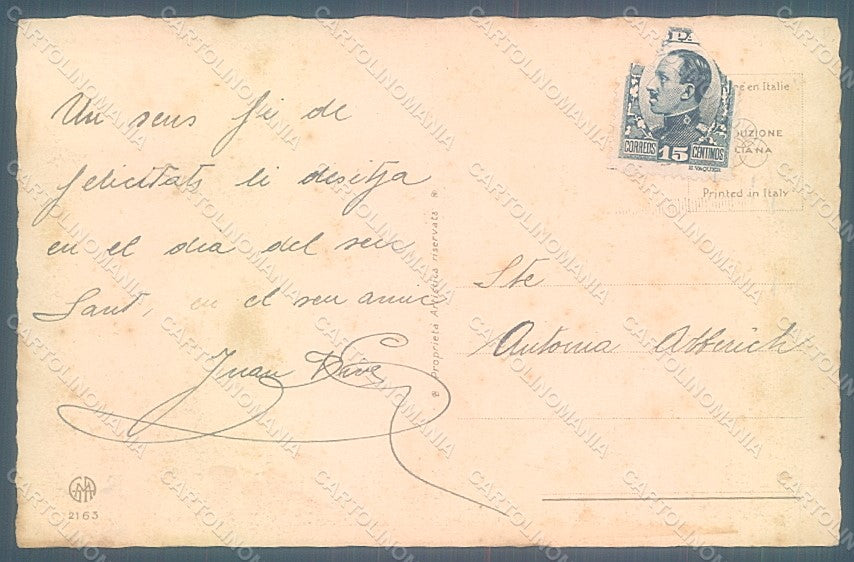 Un sens fi de
felicitats li desitja
en el dia del seu
Sant, en el seu amic
Juan
2163
Proprietà Artistica riservata
CORREOS 15 CENTIMOS
en Italie
UZIONE
LIANA
Printed in Italy
Sta
Antonia
CARTOLINOMANIA